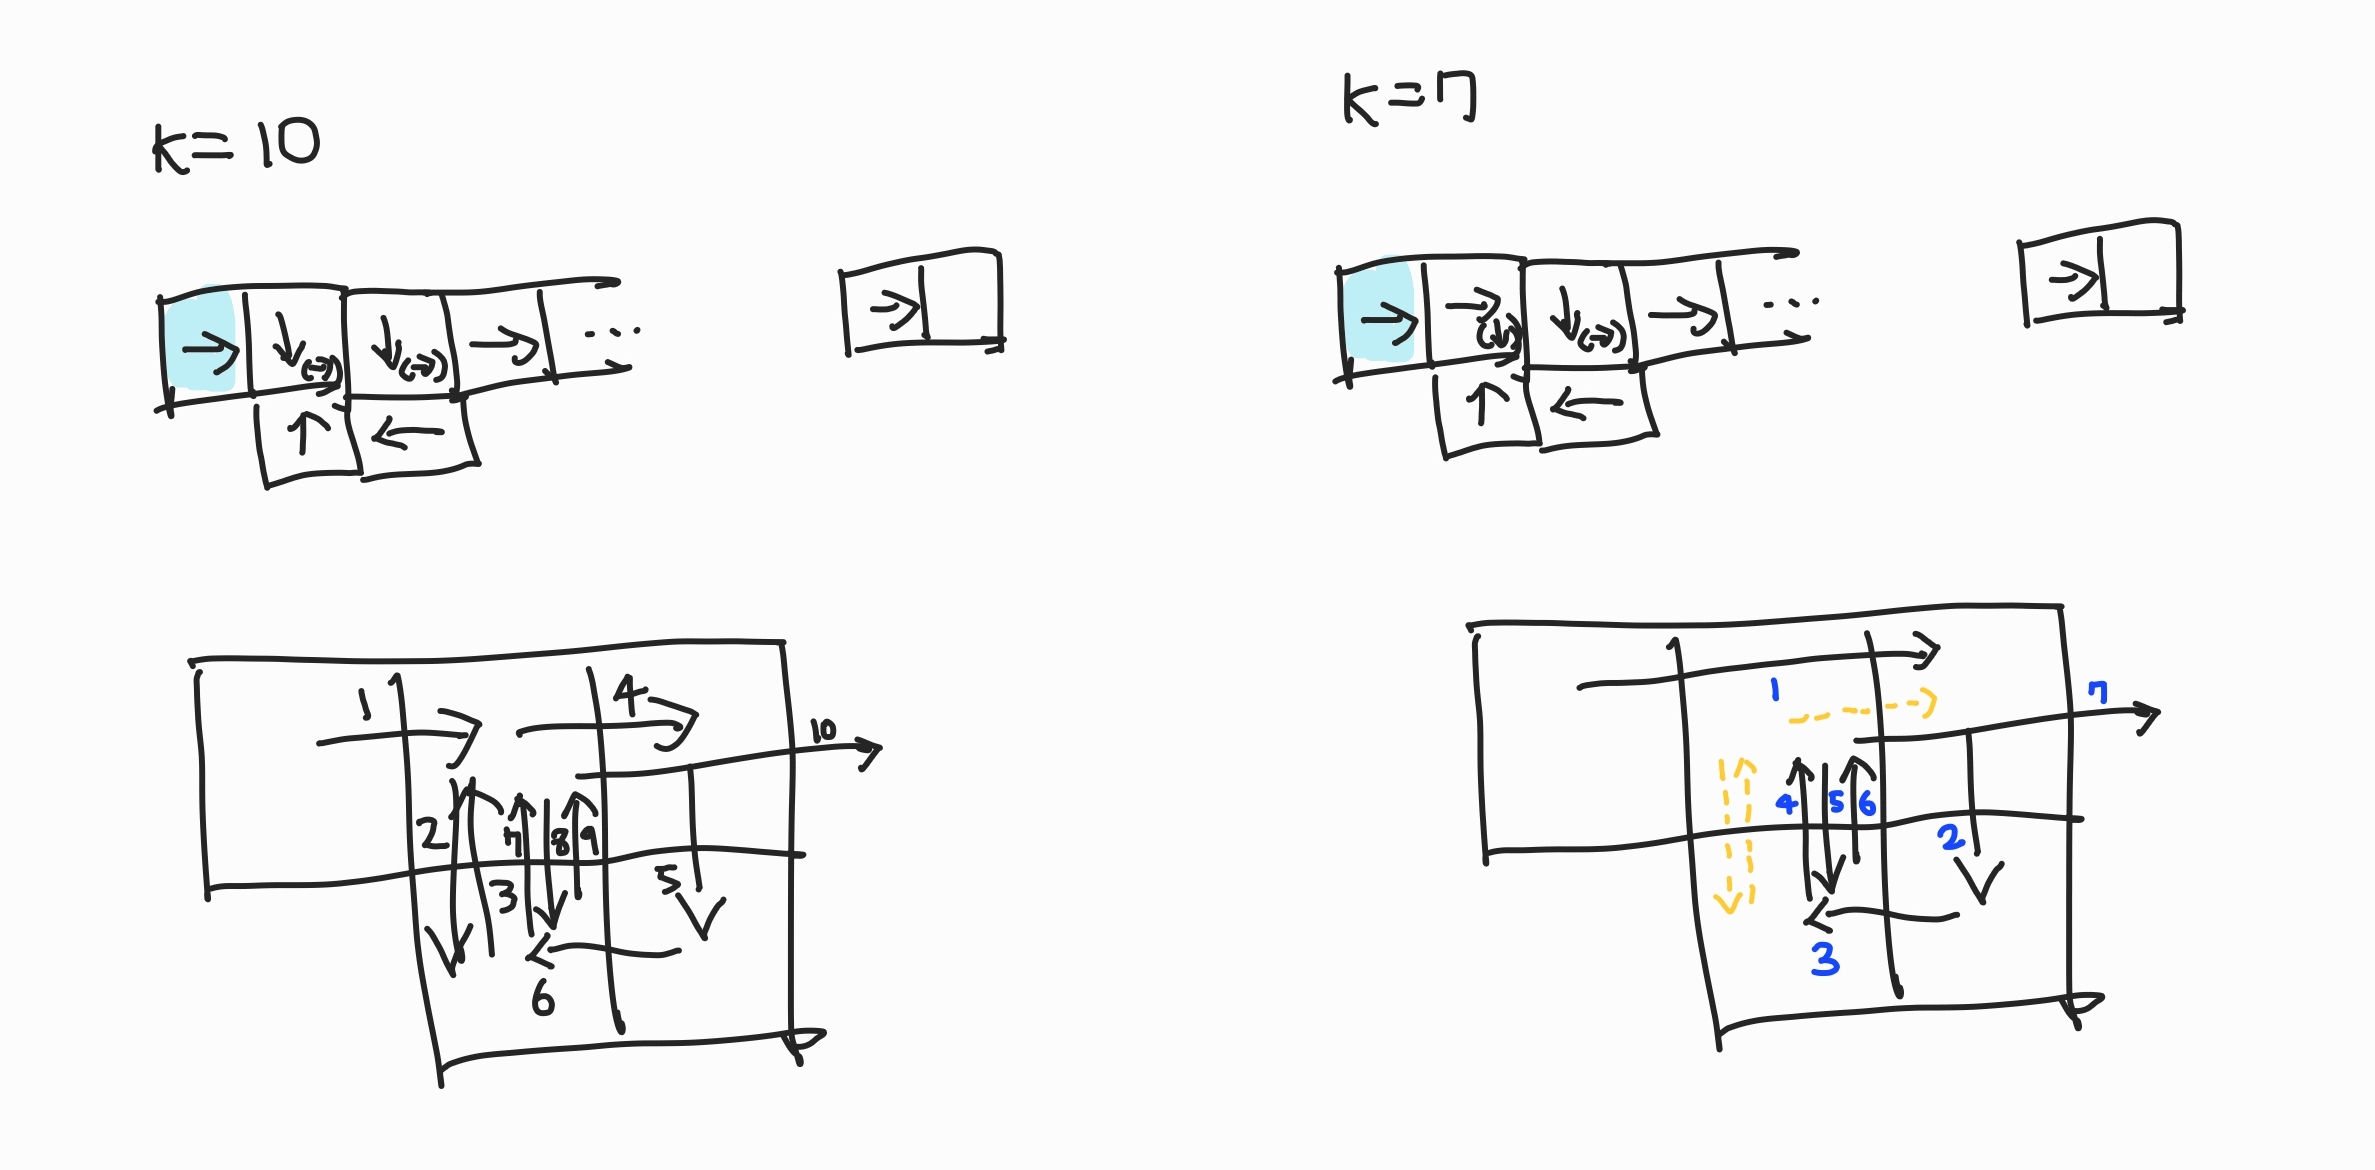 k=10
k=7
1
4
10
2
7
8
9
3
5
6
1
7
4
5
6
2
3